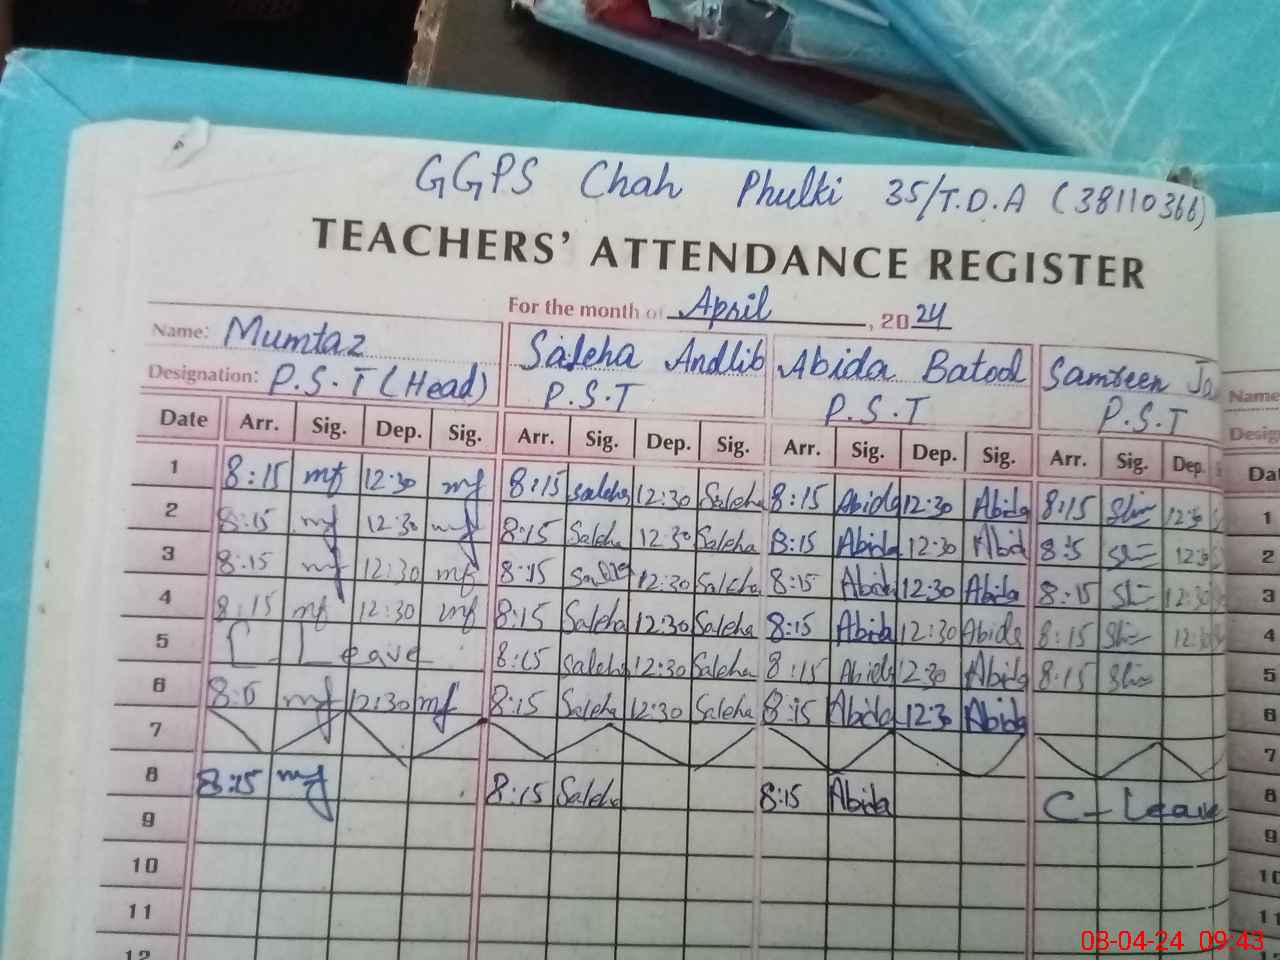 GGPS Chah Phulki 35/T.D.A (38110366)
TEACHERS' ATTENDANCE REGISTER
For the month of April, 2024
Name: Mumtaz Saleha Andlib Abida Batool Samreen Name
Designation: P.S.T (Head) P.S.T P.S.T P.S.T
Date Arr. Sig. Dep. Sig. Arr. Sig. Dep. Sig. Arr. Sig. Dep. Sig. Arr. Sig. Dep.
1 8:15 mf 12:30 mf 8:15 Saleha 12:30 Saleha 8:15 Abida 12:30 Abida 8:15 12:30 1
2 8:15 mf 12:30 mf 8:15 Saleha 12:30 Saleha 8:15 Abida 12:30 Abid 8:15 12:30 2
3 8:15 mf 12:30 mf 8:15 Saleha 12:30 Saleha 8:15 Abida 12:30 Abida 8:15 12:30 3
4 8:15 mf 12:30 mf 8:15 Saleha 12:30 Saleha 8:15 Abida 12:30 Abida 8:15 12:30 4
5 C-Leave 8:15 Saleha 12:30 Saleha 8:15 Abida 12:30 Abida 8:15 5
6 8:15 mf 12:30 mf 8:15 Saleha 12:30 Saleha 8:15 Abida 12:3 Abida 6
7 7
8 8:15 mf 8:15 Saleha 8:15 Abida C-Leave 8
9 9
10 10
11 11
12
08-04-24 09:43